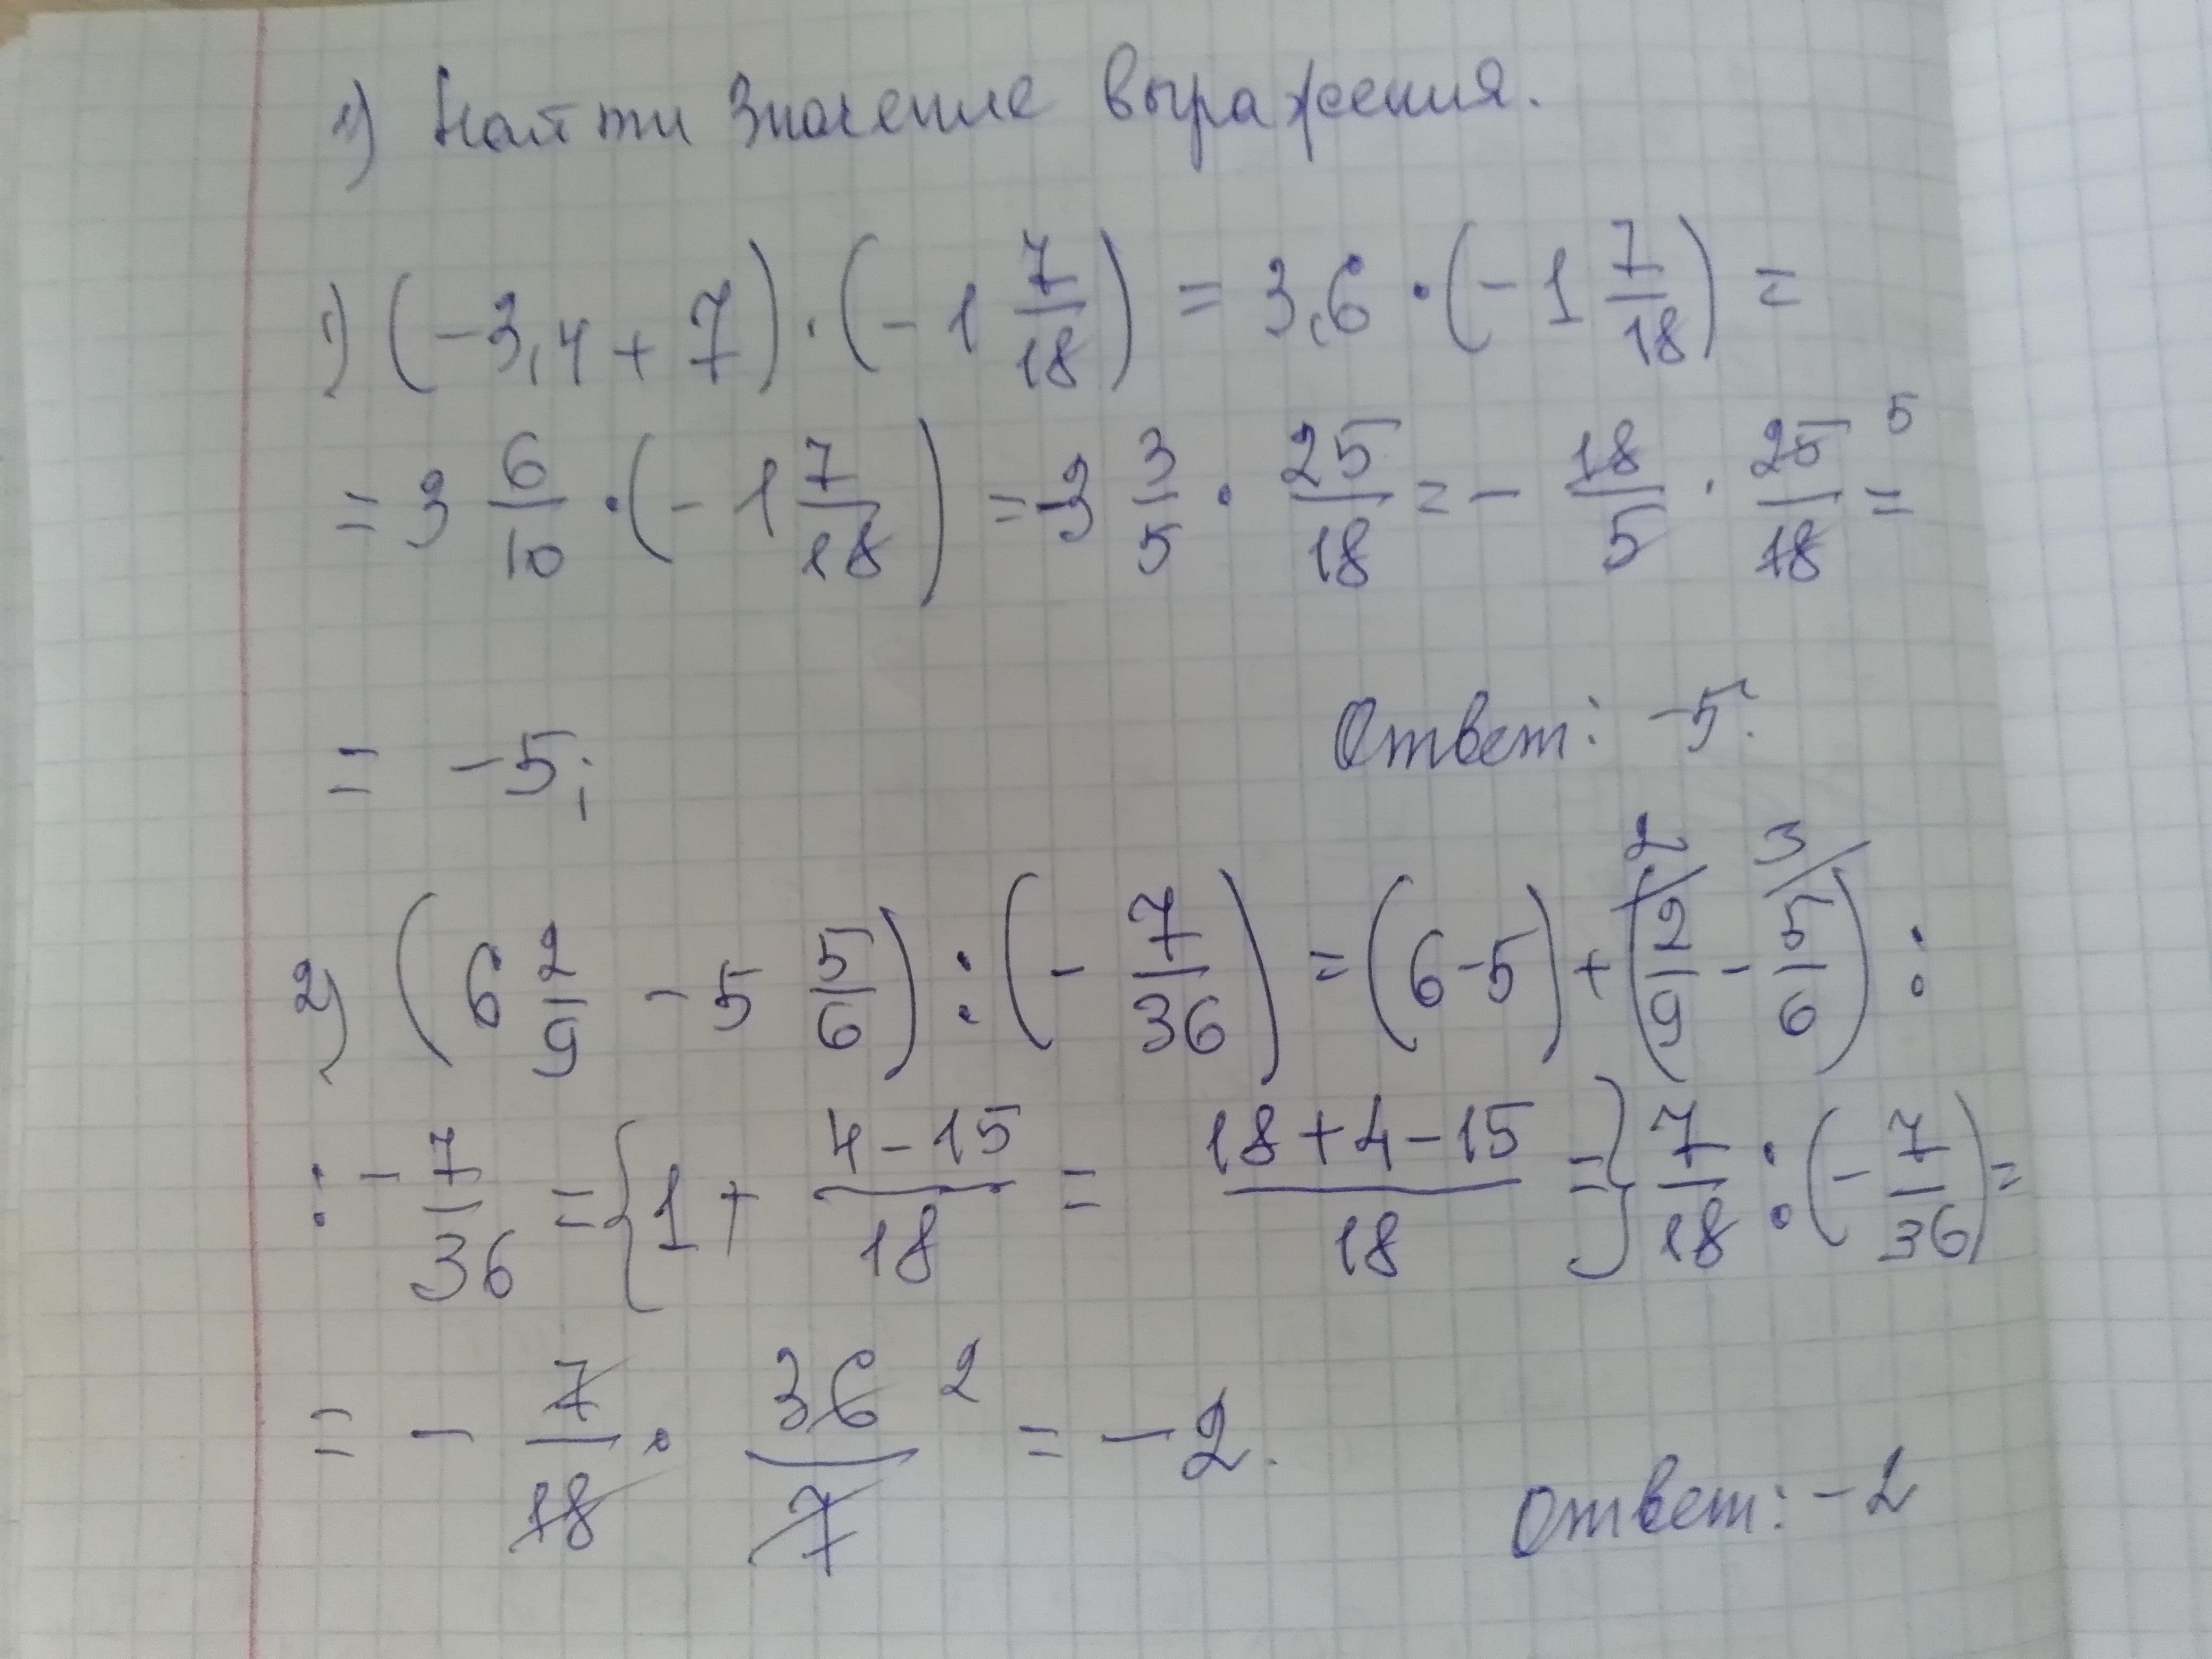 1) Найти значение выражения.
1) (-3,4 + 7) · (-1 7/18) = 3,6 · (-1 7/18) =
= 3 6/10 · (-1 7/18) = -3 3/5 · 25/18 = - 18/5 · 25/18 5 =
= -5; Ответ: -5.
2) (6 2/9 - 5 5/6) : (- 7/36) = (6-5) + (2/9 2/ - 5/6 3/) :
: - 7/36 = {1 + (4-15)/18 = (18+4-15)/18 =} 7/18 : (- 7/36) =
= - 7/18 · 36/7 2 = -2. Ответ: -2